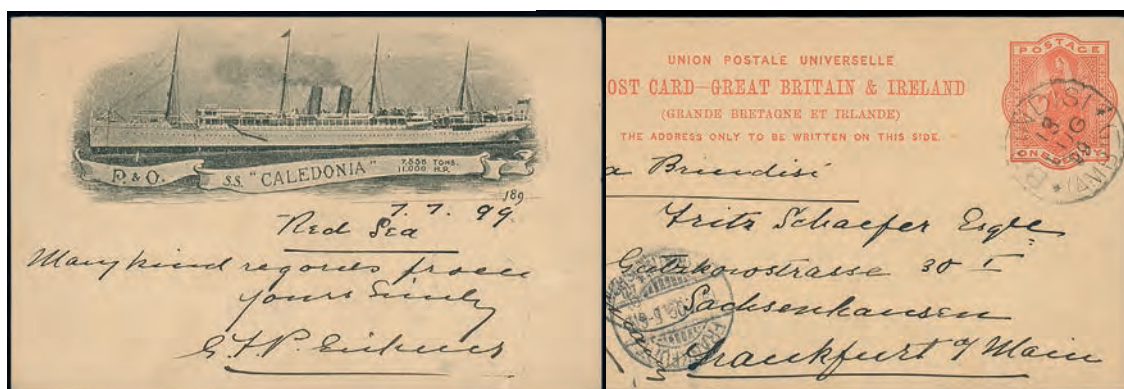 P. & O.
S.S. "CALEDONIA"
7,558 TONS.
11,000 H.P.
189
7. 7. 99.
Red Sea
Many kind regards from
yours
UNION POSTALE UNIVERSELLE
OST CARD–GREAT BRITAIN & IRELAND
(GRANDE BRETAGNE ET IRLANDE)
THE ADDRESS ONLY TO BE WRITTEN ON THIS SIDE.
POSTAGE
a Brindisi
Fritz Schaefer Esqre
Gutzkowstrasse 30 I
Sachsenhausen
Frankfurt a/ Main